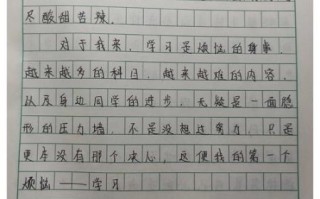 尽酸甜苦辣.
对于我来,学习是烦恼的事,
越来越多的科目,越来越难的内容,
以及身边同学的进步,无疑是一面隐
形的压力墙,不是没想过努力,只是
更本没有那个决心,这便我的第一个
烦恼——学习